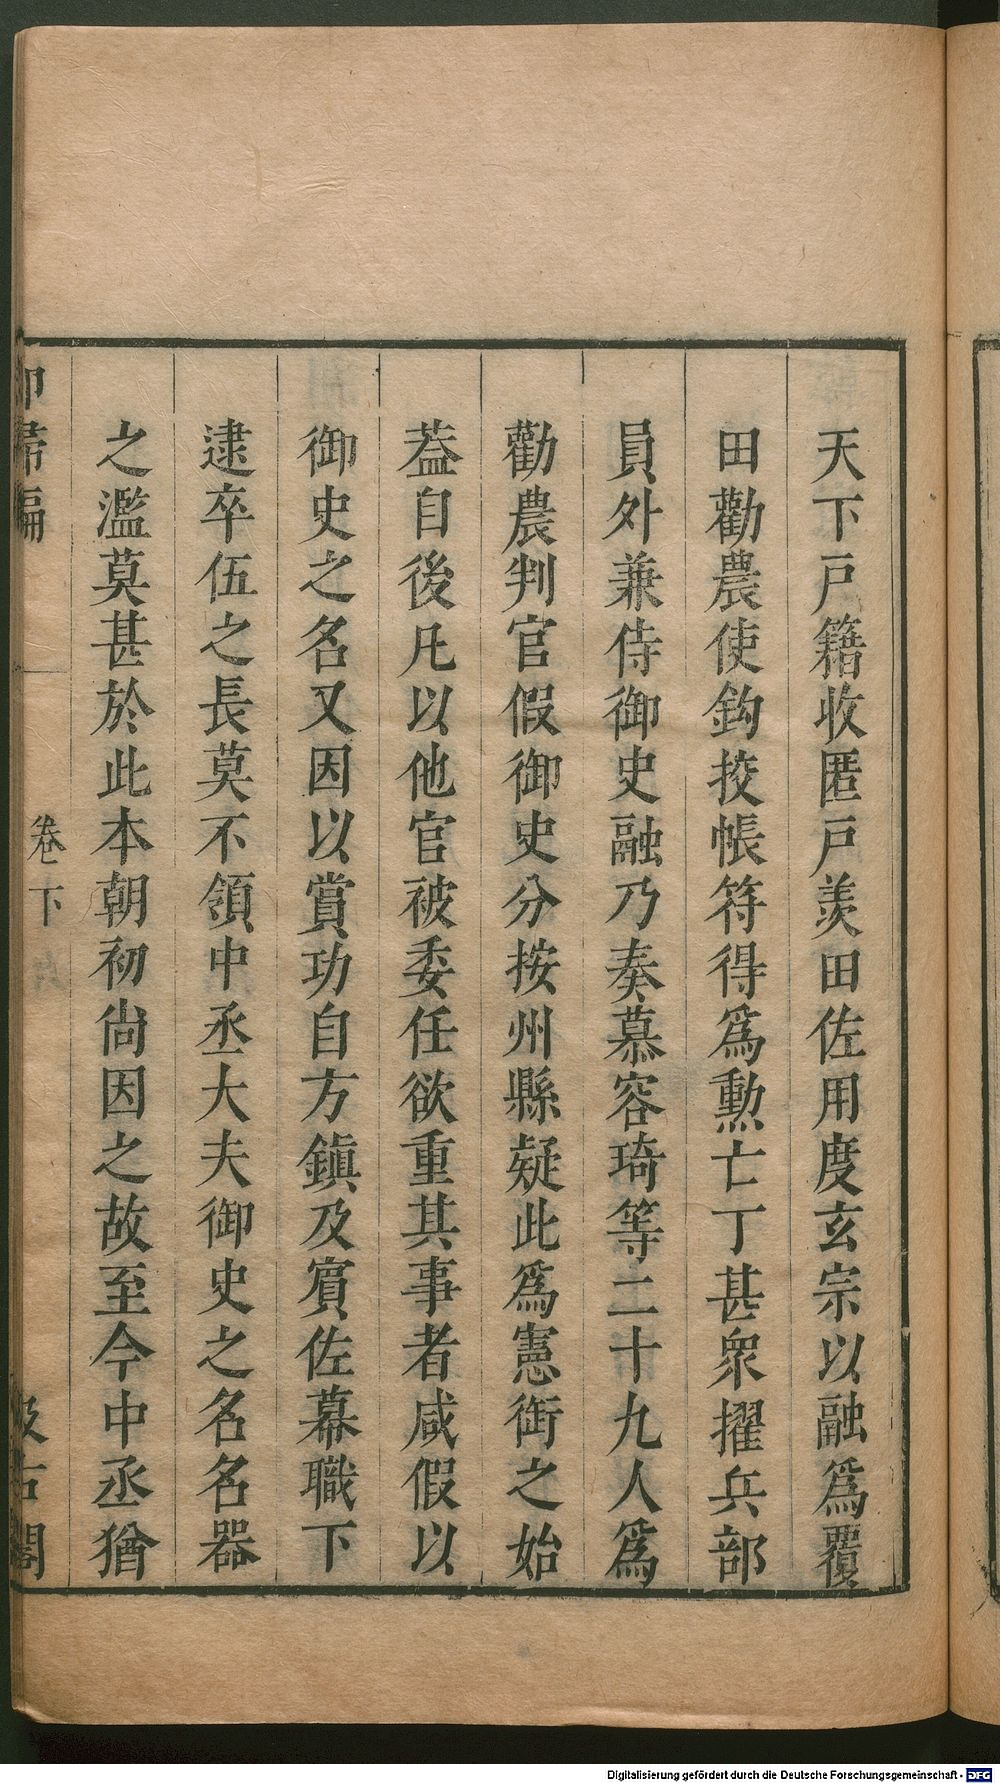 天下戸籍收匿戸羨田佐用度玄宗以融爲覆
田勸農使鈎挍帳符得爲勲亡丁甚衆擢兵部
員外兼侍御史融乃奏慕容琦等二十九人爲
勸農判官假御史分按州縣疑此爲憲銜之始
葢自後凡以他官被委任欲重其事者咸假以
御史之名又因以賞功自方鎮及賓佐幕職下
逮卒伍之長莫不領中丞大夫御史之名名器
之濫莫甚於此本朝初尚因之故至今中丞猶
卻掃編
卷下
汲古閣
Digitalisierung gefördert durch die Deutsche Forschungsgemeinschaft - DFG